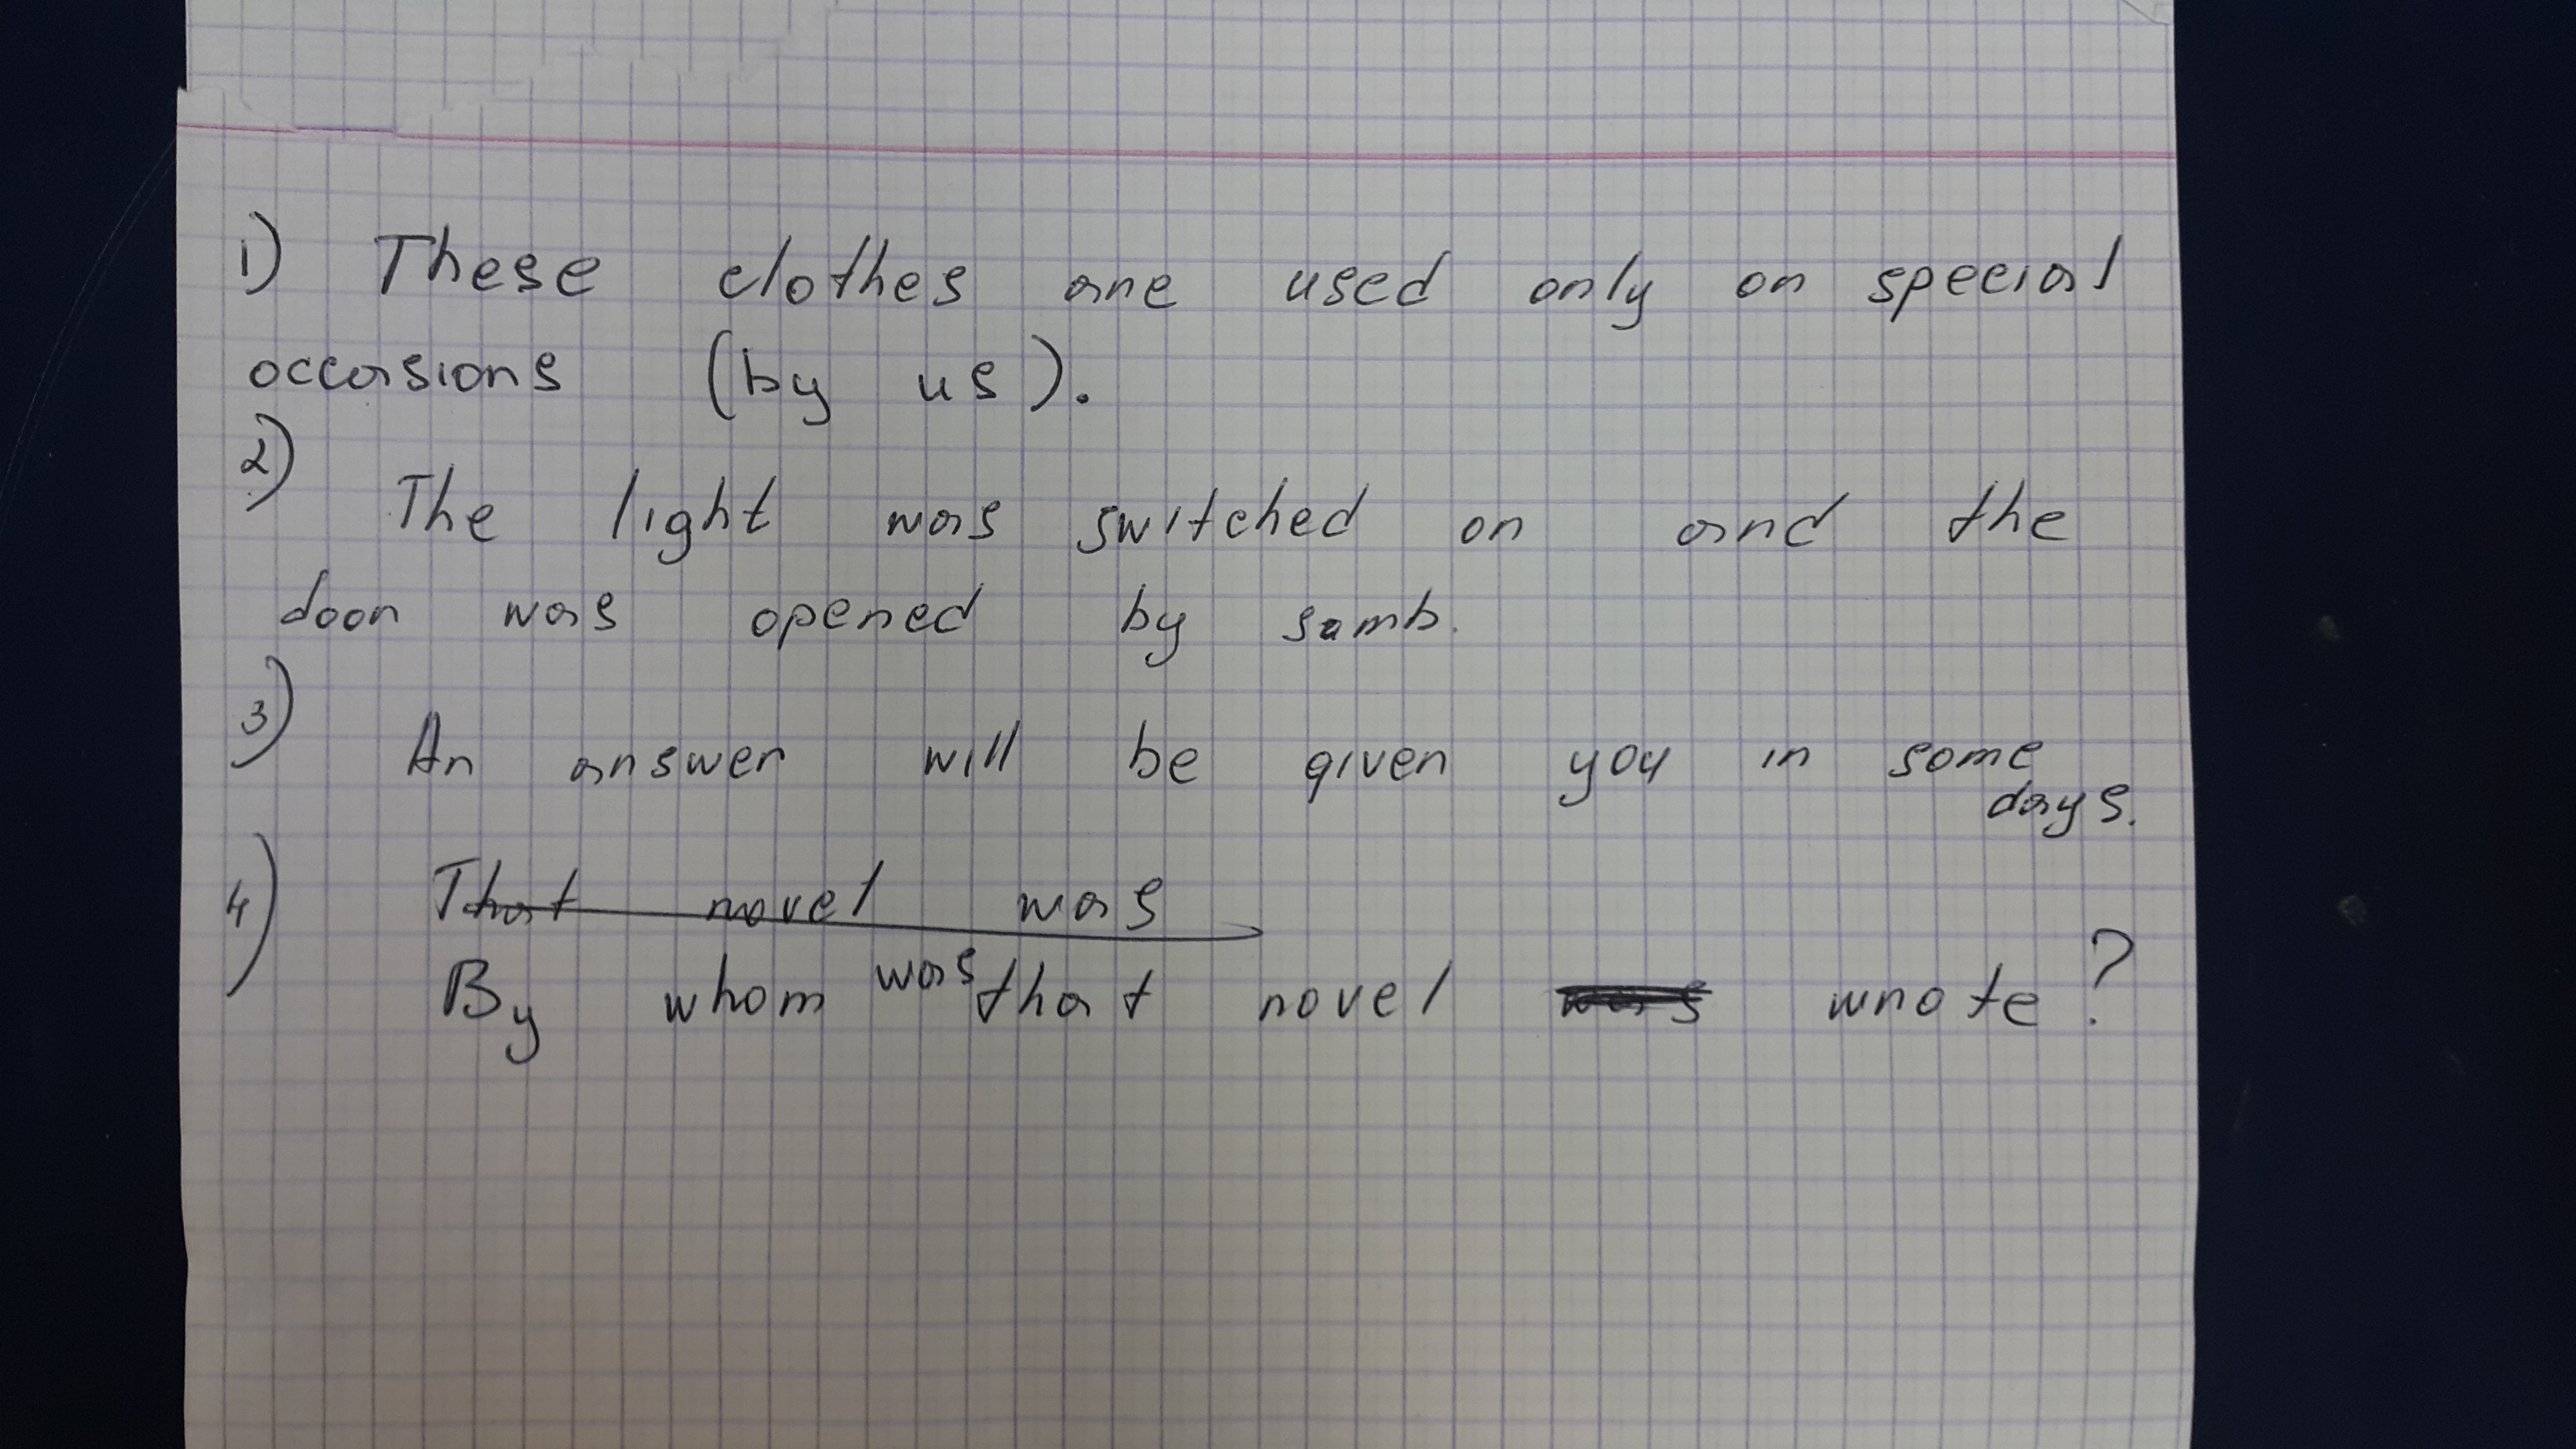 1) These clothes are used only on special
occasions (by us).
2) The light was switched on and the
door was opened by smb.
3) An answer will be given you in some
days.
4) That novel was
By whom was that novel was wrote?